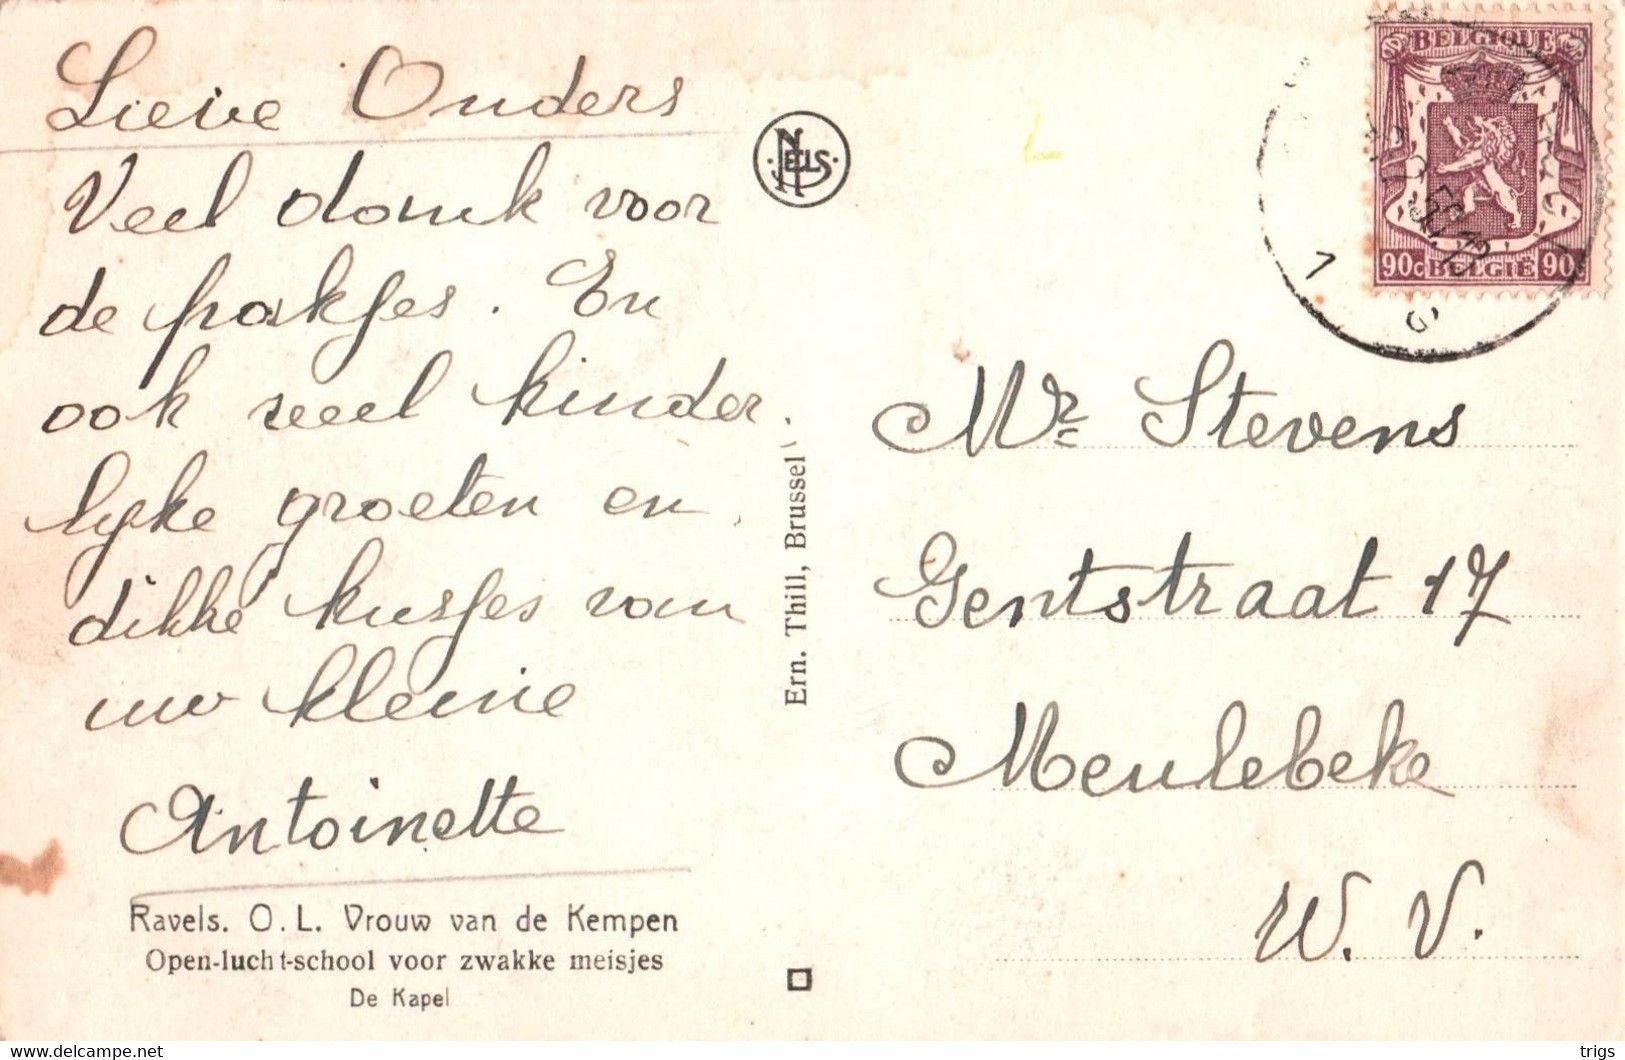 Lieve Ouders
Veel dank voor
de pakjes. En
ook veel kinder
lyke groeten en
dikke kusjes van
uw kleine
Antoinette
Ravels. O. L. Vrouw van de Kempen
Open-lucht-school voor zwakke meisjes
De Kapel
NELS
Ern. Thill, Brussel
BELGIQUE
90c BELGIE 90c
Mr Stevens
Gentstraat 17
Meulebeke
W. V.
www.delcampe.net
trigs